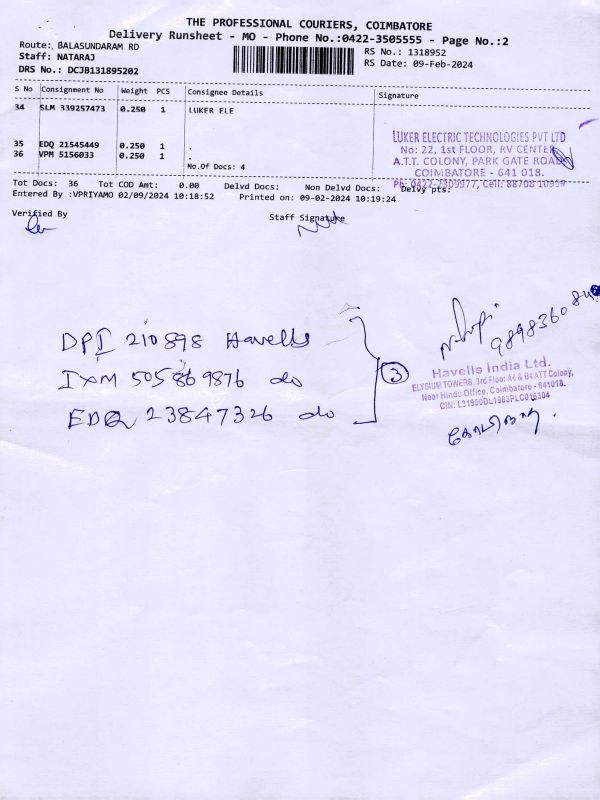 THE PROFESSIONAL COURIERS, COIMBATORE
Delivery Runsheet - MO - Phone No.:0422-3505555 - Page No.:2
Route: BALASUNDARAM RD
RS No.: 1318952
Staff: NATARAJ
RS Date: 09-Feb-2024
DRS No.: DCJB131895202
S No Consignment No Weight PCS Consignee Details Signature
34 SLM 339257473 0.250 1 LUKER ELE
LUKER ELECTRIC TECHNOLOGIES PVT LTD
No: 22, 1st FLOOR, RV CENTER
A.T.T. COLONY, PARK GATE ROAD
COIMBATORE - 641 018.
Ph: 0422-7309977, Cell: 88708 10959
35 EDQ 21545449 0.250 1 .
36 VPM 5156033 0.250 1 .
No.Of Docs: 4
Tot Docs: 36 Tot COD Amt: 0.00 Delvd Docs: Non Delvd Docs: Delvy pts:
Entered By :VPRIYAMO 02/09/2024 10:18:52 Printed on: 09-02-2024 10:19:24
Verified By Staff Signature
DPI 210898 Havells
IXM 505869876 do
EDQ 23847326 do
3
Havells India Ltd.
ELYSIUM TOWERS, 3rd Floor A4 & B4 ATT Colony,
Near Hindu Office, Coimbatore - 641018.
CIN: L31900DL1983PLC016304